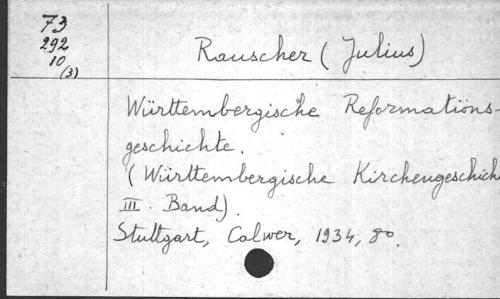 73
292
10
(3)
Rauscher (Julius)
Württembergische Reformations-
geschichte.
(Württembergische Kirchengeschich
III. Band).
Stuttgart, Calwer, 1934, 8o.